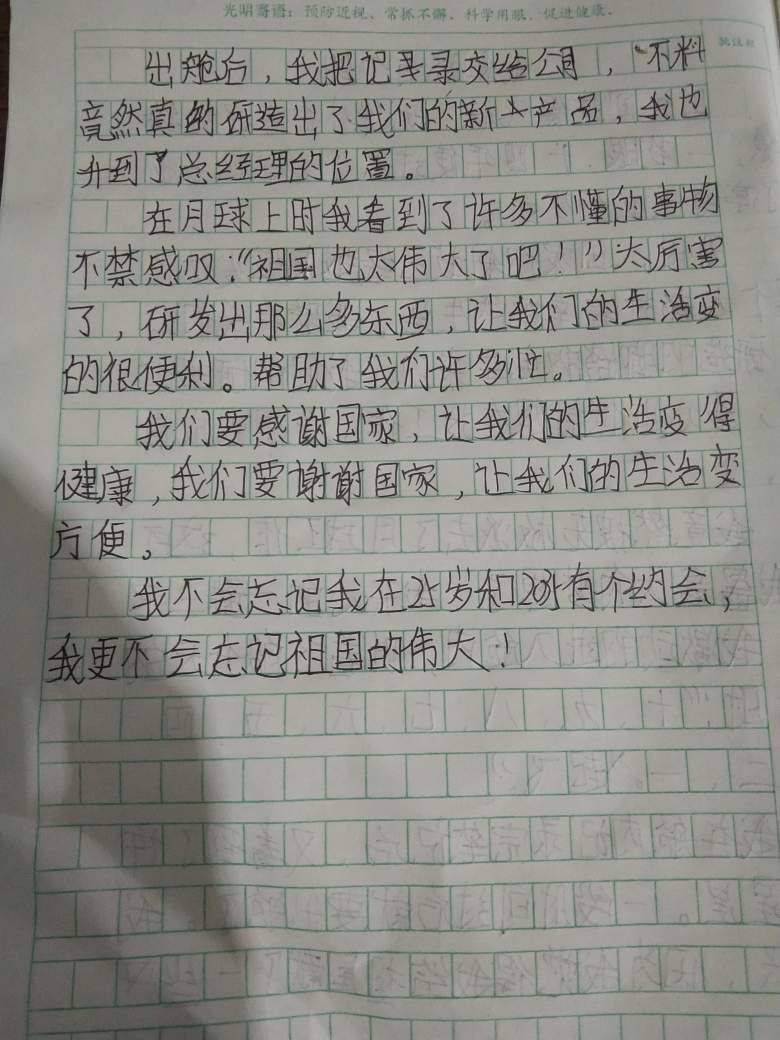 光明寄语：预防近视、常抓不懈、科学用眼、促进健康。
出舱后，我把记录交给公司，不料
竟然真的研造出了我们的新产品，我也
升到了总经理的位置。
在月球上时我看到了许多不懂的事物
不禁感叹："祖国也太伟大了吧！"太厉害
了，研发出那么多东西，让我们的生活变
的很便利。帮助了我们许多忙。
我们要感谢国家，让我们的生活变得
健康，我们要谢谢国家，让我们的生活变
方便。
我不会忘记我在25岁和2035有个约会，
我更不会忘记祖国的伟大！